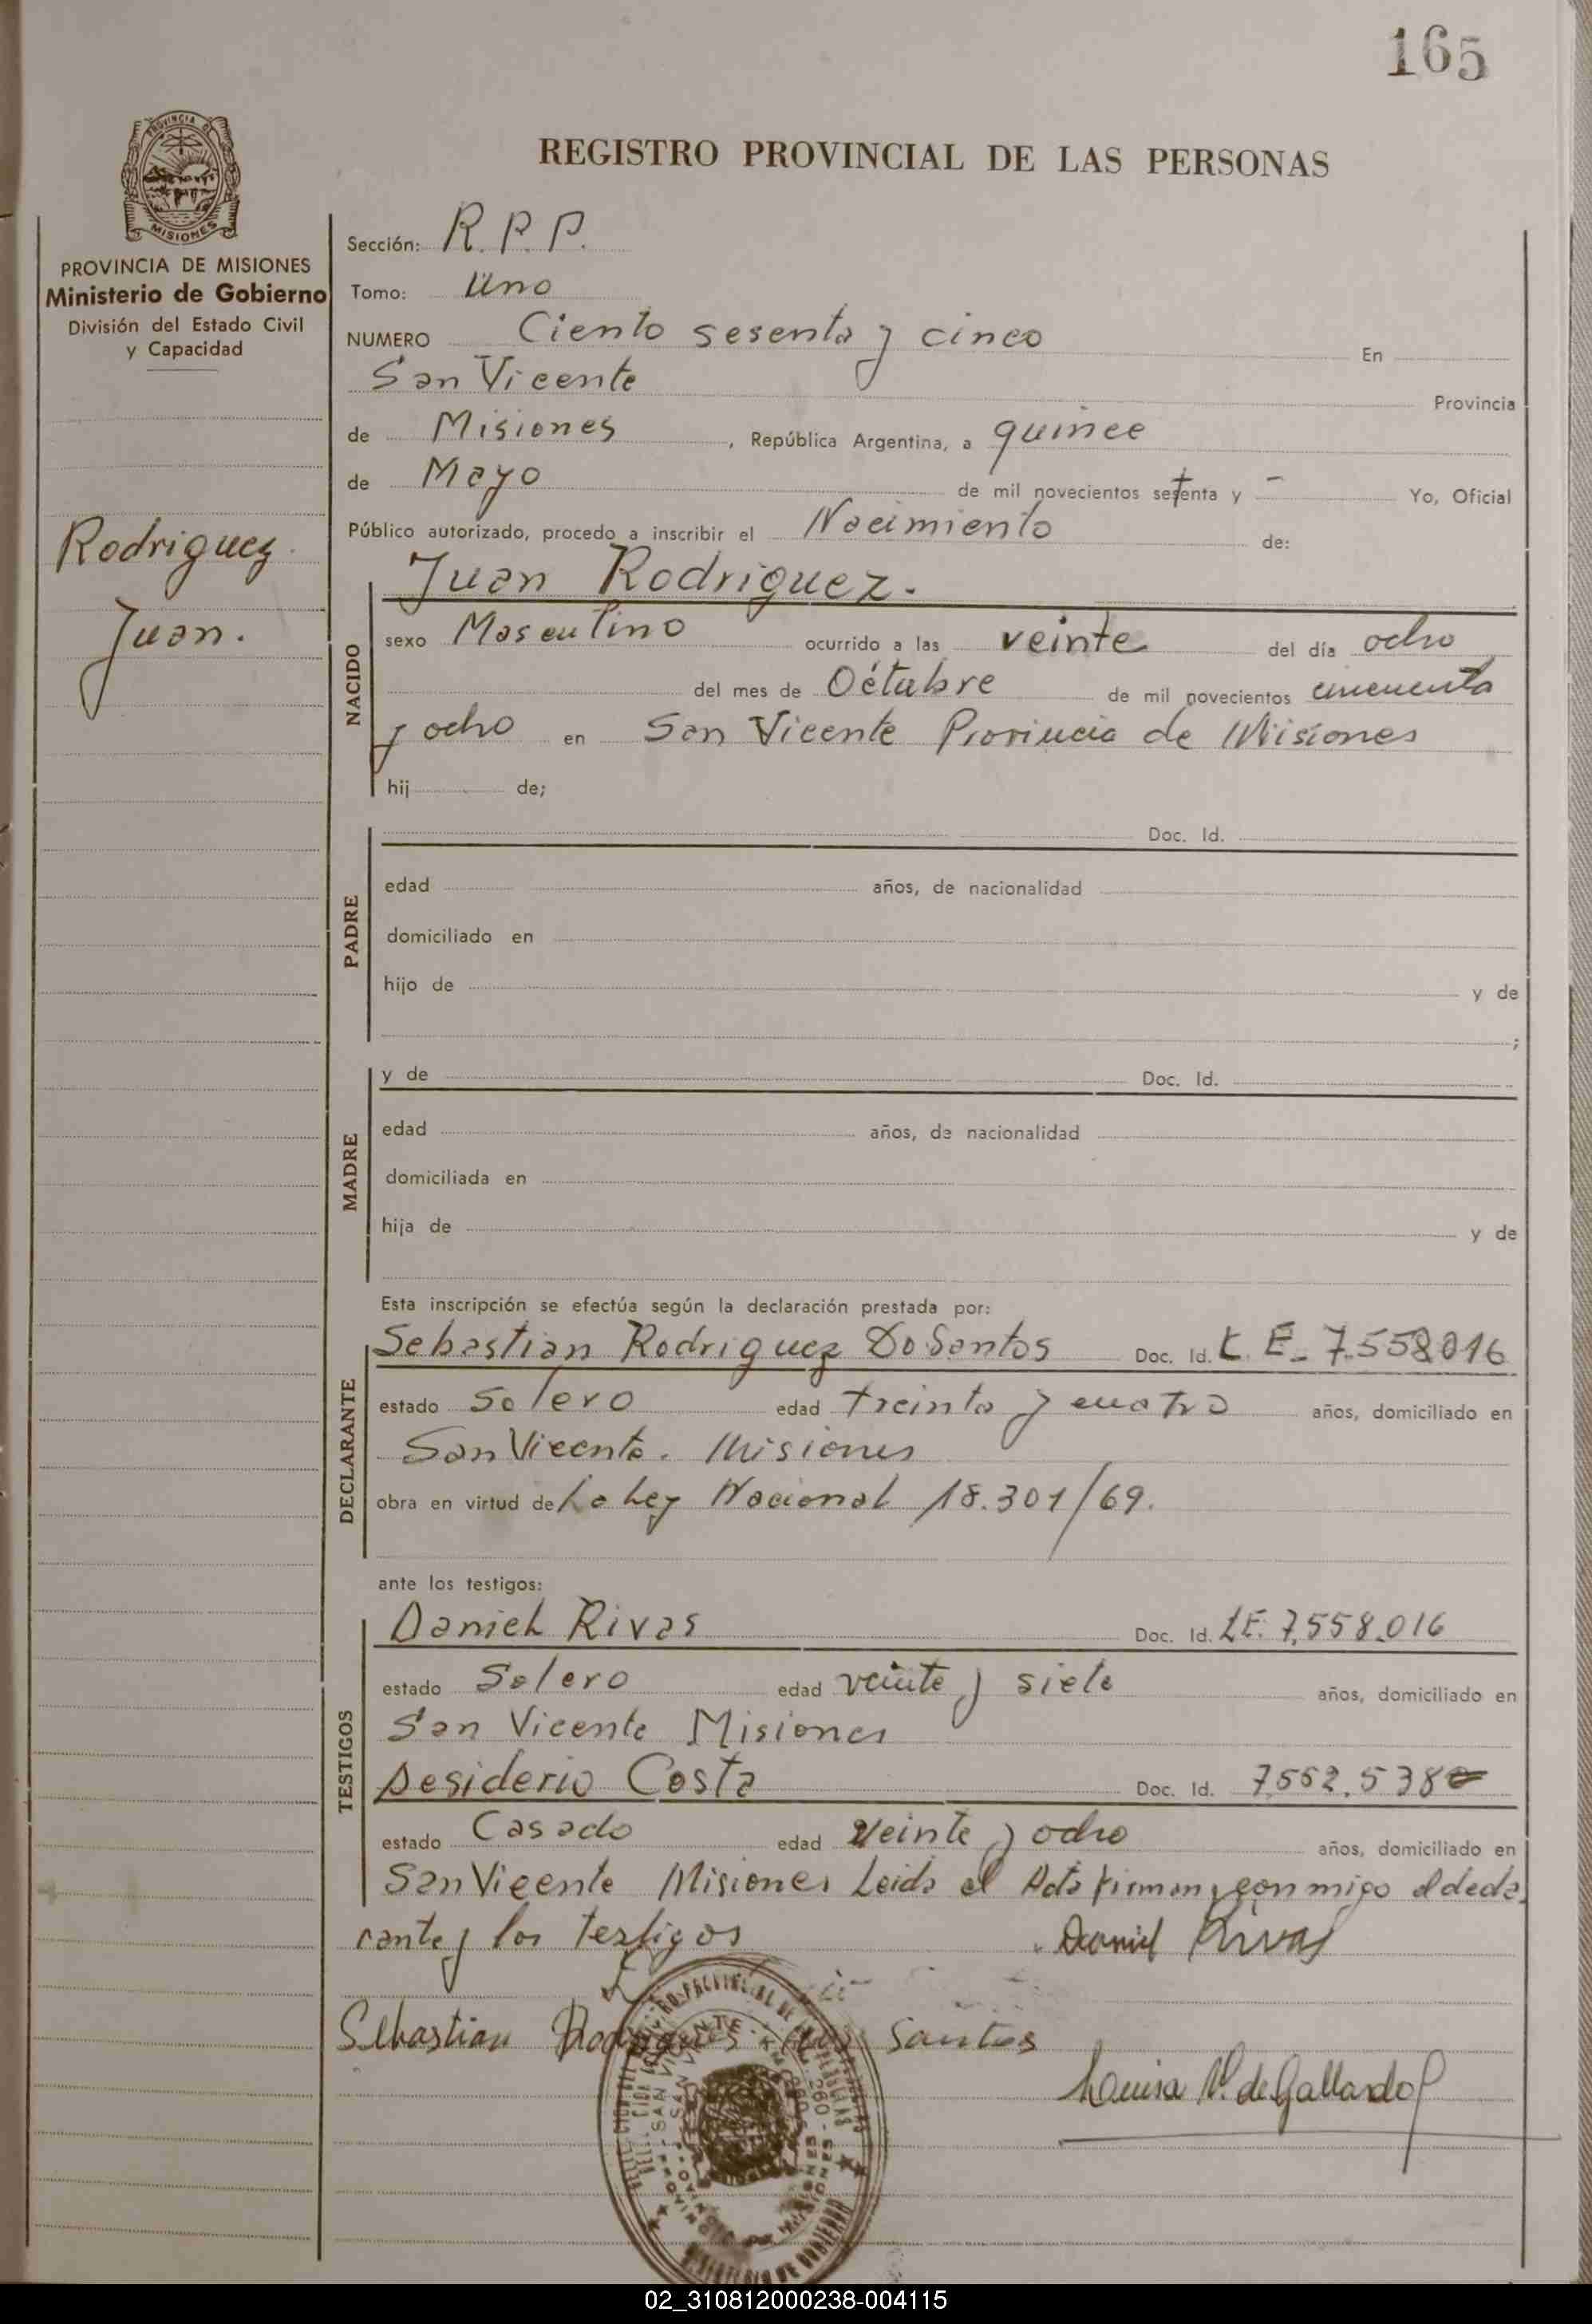 165
PROVINCIA DE MISIONES
REGISTRO PROVINCIAL DE LAS PERSONAS
PROVINCIA DE MISIONES
Ministerio de Gobierno
División del Estado Civil
y Capacidad
Rodriguez
Juan.
Sección: R. P. P.
Tomo: Uno
NUMERO Ciento sesenta y cinco En
San Vicente Provincia
de Misiones, República Argentina, a quince
de Mayo de mil novecientos setenta y - Yo, Oficial
Público autorizado, procedo a inscribir el Nacimiento de:
Juan Rodriguez.
NACIDO
sexo Masculino ocurrido a las veinte del día ocho
del mes de Octubre de mil novecientos cincuenta
y ocho en San Vicente Provincia de Misiones
hij de;
PADRE
Doc. Id.
edad años, de nacionalidad
domiciliado en
hijo de y de
;
MADRE
y de Doc. Id.
edad años, de nacionalidad
domiciliada en
hija de y de
Esta inscripción se efectúa según la declaración prestada por:
DECLARANTE
Sebastian Rodriguez DoSantos Doc. Id. L. E. 7.558.016
estado Solero edad treinta y cuatro años, domiciliado en
San Vicente. Misiones
obra en virtud de La Ley Nacional 18.301/69.
ante los testigos:
TESTIGOS
Daniel Rivas Doc. Id. LE. 7.558.016
estado Solero edad veinte y siete años, domiciliado en
San Vicente Misiones
Desiderio Costa Doc. Id. 7552.538
estado Casado edad veinte y ocho años, domiciliado en
San Vicente Misiones Leida el Acta firman, conmigo el decla
rante y los testigos Daniel Rivas
Sebastian Rodrigues Dos Santos
Louisa V. de Gallardo
02_310812000238-004115